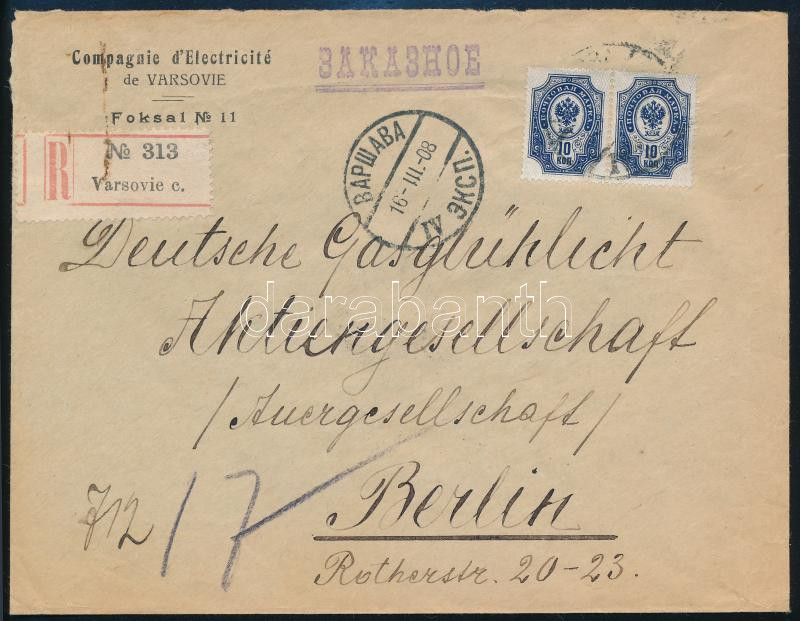 Compagnie d'Electricité
de VARSOVIE
Foksal № 11
ЗАКАЗНОЕ
R
№ 313
Varsovie c.
ВАРШАВА
16-III.-08
IV ЭКСП.
ПОЧТОВАЯ МАРКА
10
КОП
ПОЧТОВАЯ МАРКА
10
КОП
1
Deutsche Gasglühlicht
Aktiengesellschaft
/Auergesellschaft/
Berlin
Rotherstr. 20-23.
712
17
darabanth